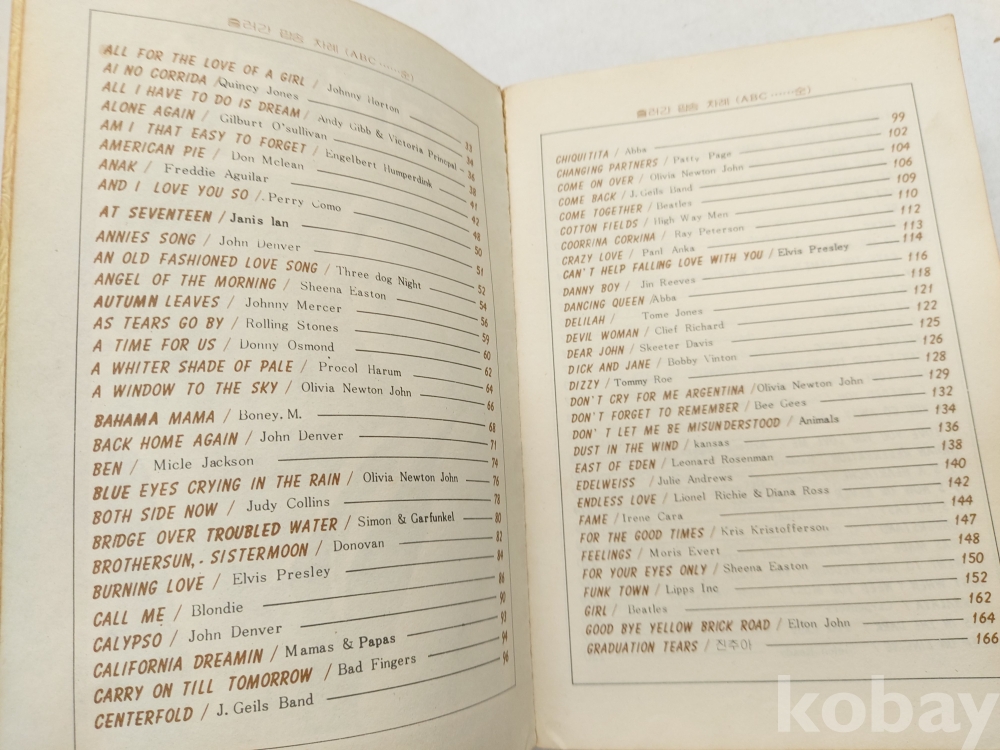 흘러간 팝송 차례 (ABC……순)
ALL FOR THE LOVE OF A GIRL / Johnny Horton 33
AI NO CORRIDA /Quincy Jones 34
ALL I HAVE TO DO IS DREAM / Andy Gibb & Victoria Principal 36
ALONE AGAIN / Gilburt O'sullivan 38
AM I THAT EASY TO FORGET / Engelbert Humperdink 41
AMERICAN PIE / Don Mclean 42
ANAK / Freddie Aguilar 48
AND I LOVE YOU SO / Perry Como 50
AT SEVENTEEN / Janis Ian 51
ANNIES SONG / John Denver 52
AN OLD FASHIONED LOVE SONG / Three dog Night 54
ANGEL OF THE MORNING / Sheena Easton 56
AUTUMN LEAVES / Johnny Mercer 59
AS TEARS GO BY / Rolling Stones 60
A TIME FOR US / Donny Osmond 62
A WHITER SHADE OF PALE / Procol Harum 64
A WINDOW TO THE SKY / Olivia Newton John 66
BAHAMA MAMA / Boney. M. 68
BACK HOME AGAIN / John Denver 71
BEN / Micle Jackson 74
BLUE EYES CRYING IN THE RAIN / Olivia Newton John 76
BOTH SIDE NOW / Judy Collins 78
BRIDGE OVER TROUBLED WATER / Simon & Garfunkel 80
BROTHERSUN,. SISTERMOON / Donovan 82
BURNING LOVE / Elvis Presley 84
CALL ME / Blondie 86
CALYPSO / John Denver 90
CALIFORNIA DREAMIN / Mamas & Papas 93
CARRY ON TILL TOMORROW / Bad Fingers 94
CENTERFOLD / J. Geils Band 96
흘러간 팝송 차례 (ABC……순)
CHIQUITITA / Abba 99
CHANGING PARTNERS / Patty Page 102
COME ON OVER / Olivia Newton John 104
COME BACK / J. Geils Band 106
COME TOGETHER / Beatles 109
COTTON FIELDS / High Way Men 110
COORRINA CORKINA / Ray Peterson 112
CRAZY LOVE / Paul Anka 113
CAN'T HELP FALLING LOVE WITH YOU / Elvis Presley 114
DANNY BOY / Jin Reeves 116
DANCING QUEEN /Abba 118
DELILAH / Tome Jones 121
DEVIL WOMAN / Clief Richard 122
DEAR JOHN / Skeeter Davis 125
DICK AND JANE / Bobby Vinton 126
DIZZY / Tommy Roe 128
DON'T CRY FOR ME ARGENTINA /Olivia Newton John 129
DON'T FORGET TO REMEMBER / Bee Gees 132
DON'T LET ME BE MISUNDERSTOOD / Animals 134
DUST IN THE WIND / kansas 136
EAST OF EDEN / Leonard Rosenman 138
EDELWEISS / Julie Andrews 140
ENDLESS LOVE / Lionel Richie & Diana Ross 142
FAME / Irene Cara 144
FOR THE GOOD TIMES / Kris Kristofferson 147
FEELINGS / Moris Evert 148
FOR YOUR EYES ONLY / Sheena Easton 150
FUNK TOWN / Lipps Inc 152
GIRL / Beatles 162
GOOD BYE YELLOW BRICK ROAD / Elton John 164
GRADUATION TEARS / 진추아 166
kobay